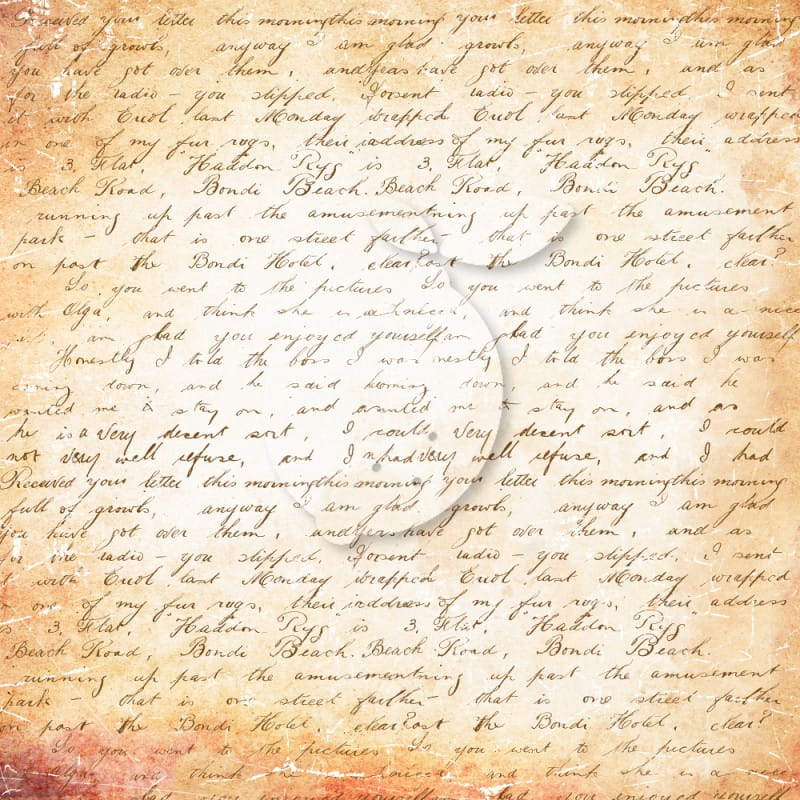 Received your letter this morningthis morning your letter this morningthis morning
full of growls, anyway I am glad growls, anyway I am glad
you have got over them, and have got over them, and as
for the radio - you slipped. sent radio - you slipped. I sent
it with last Monday wrapped last Monday wrapped
in one of my fur rugs, their address of my fur rugs, their address
is 3. Flat, "Haddon Rig" is 3. Flat, "Haddon Rig"
Beach Road, Bondi Beach. Beach Road, Bondi Beach.
running up past the amusementning up past the amusement
park - that is one street farther - that is one street farther
on past the Bondi Hotel, clear?ast the Bondi Hotel, clear?
So you went to the pictures So you went to the pictures
with Olga, and think she is a and think she is a nice
am glad you enjoyed yourself am glad you enjoyed yourself
Honestly I told the boss I was nestly I told the boss I was
coming down, and he said coming down, and he said he
wanted me to stay on, and wanted me to stay on, and as
he is a very decent sort, I could very decent sort, I could
not very well refuse, and I had very well refuse, and I had
Received your letter this morningthis morning your letter this morningthis morning
full of growls, anyway I am glad growls, anyway I am glad
you have got over them, and have got over them, and as
for the radio - you slipped. sent radio - you slipped. I sent
it with last Monday wrapped last Monday wrapped
in one of my fur rugs, their address of my fur rugs, their address
is 3. Flat, "Haddon Rig" is 3. Flat, "Haddon Rig"
Beach Road, Bondi Beach. Beach Road, Bondi Beach.
running up past the amusementning up past the amusement
park - that is one street farther - that is one street farther
on past the Bondi Hotel, clear?ast the Bondi Hotel, clear?
So you went to the pictures So you went to the pictures
Olga, and think she and think she is a nice
glad you enjoyed yourself am glad you enjoyed yourself